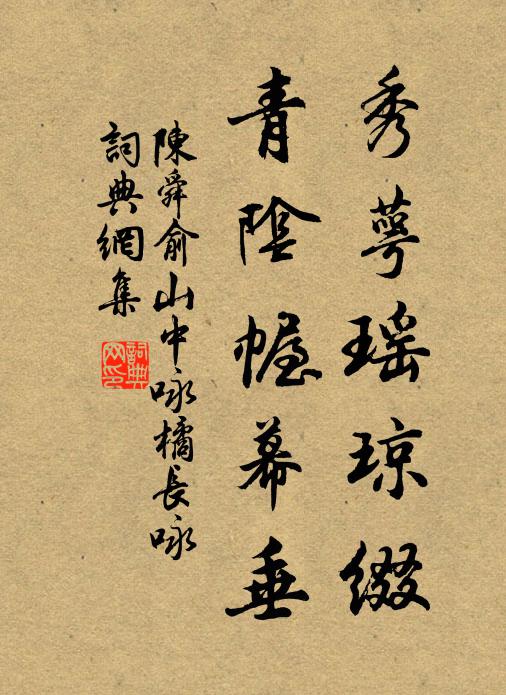 秀萼瑶琼缀
青陰幄幕垂
陳舜俞山中咏橘長咏
詞典網集
詞典網印